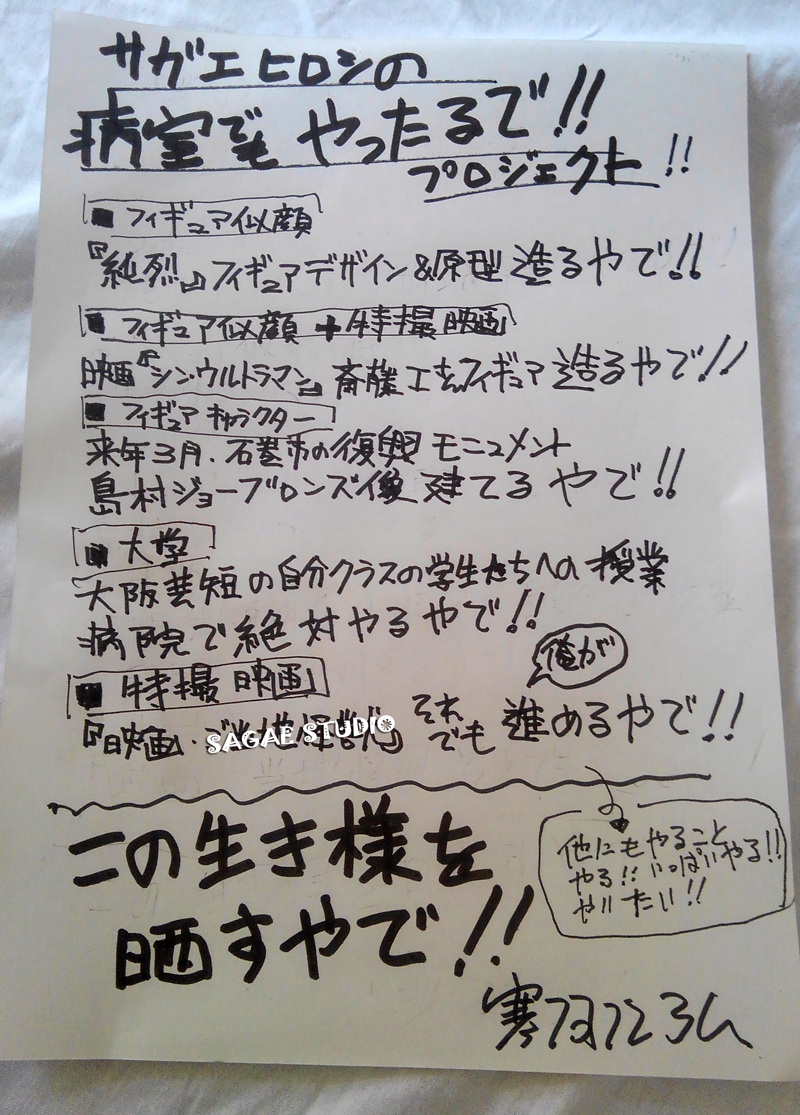 サガエヒロシの
病室でもやったるで!!
プロジェクト!!
■フィギュア似顔
『純烈』フィギュアデザイン&原型造るやで!!
■フィギュア似顔+特撮映画
映画『シン・ウルトラマン』斎藤工さんフィギュア造るやで!!
■フィギュアキャラクター
来年3月.石巻市の復興モニュメント
島村ジョーブロンズ像建てるやで!!
■大学
大阪芸短の自分クラスの学生たちへの授業
病院で絶対やるやで!!
■特撮映画
俺が
『映画・ご当地怪獣』それでも進めるやで!!
SAGAE STUDIO
この生き様を
晒すやで!!
他にもやること
やる!!いっぱいやる!!
やりたい!!